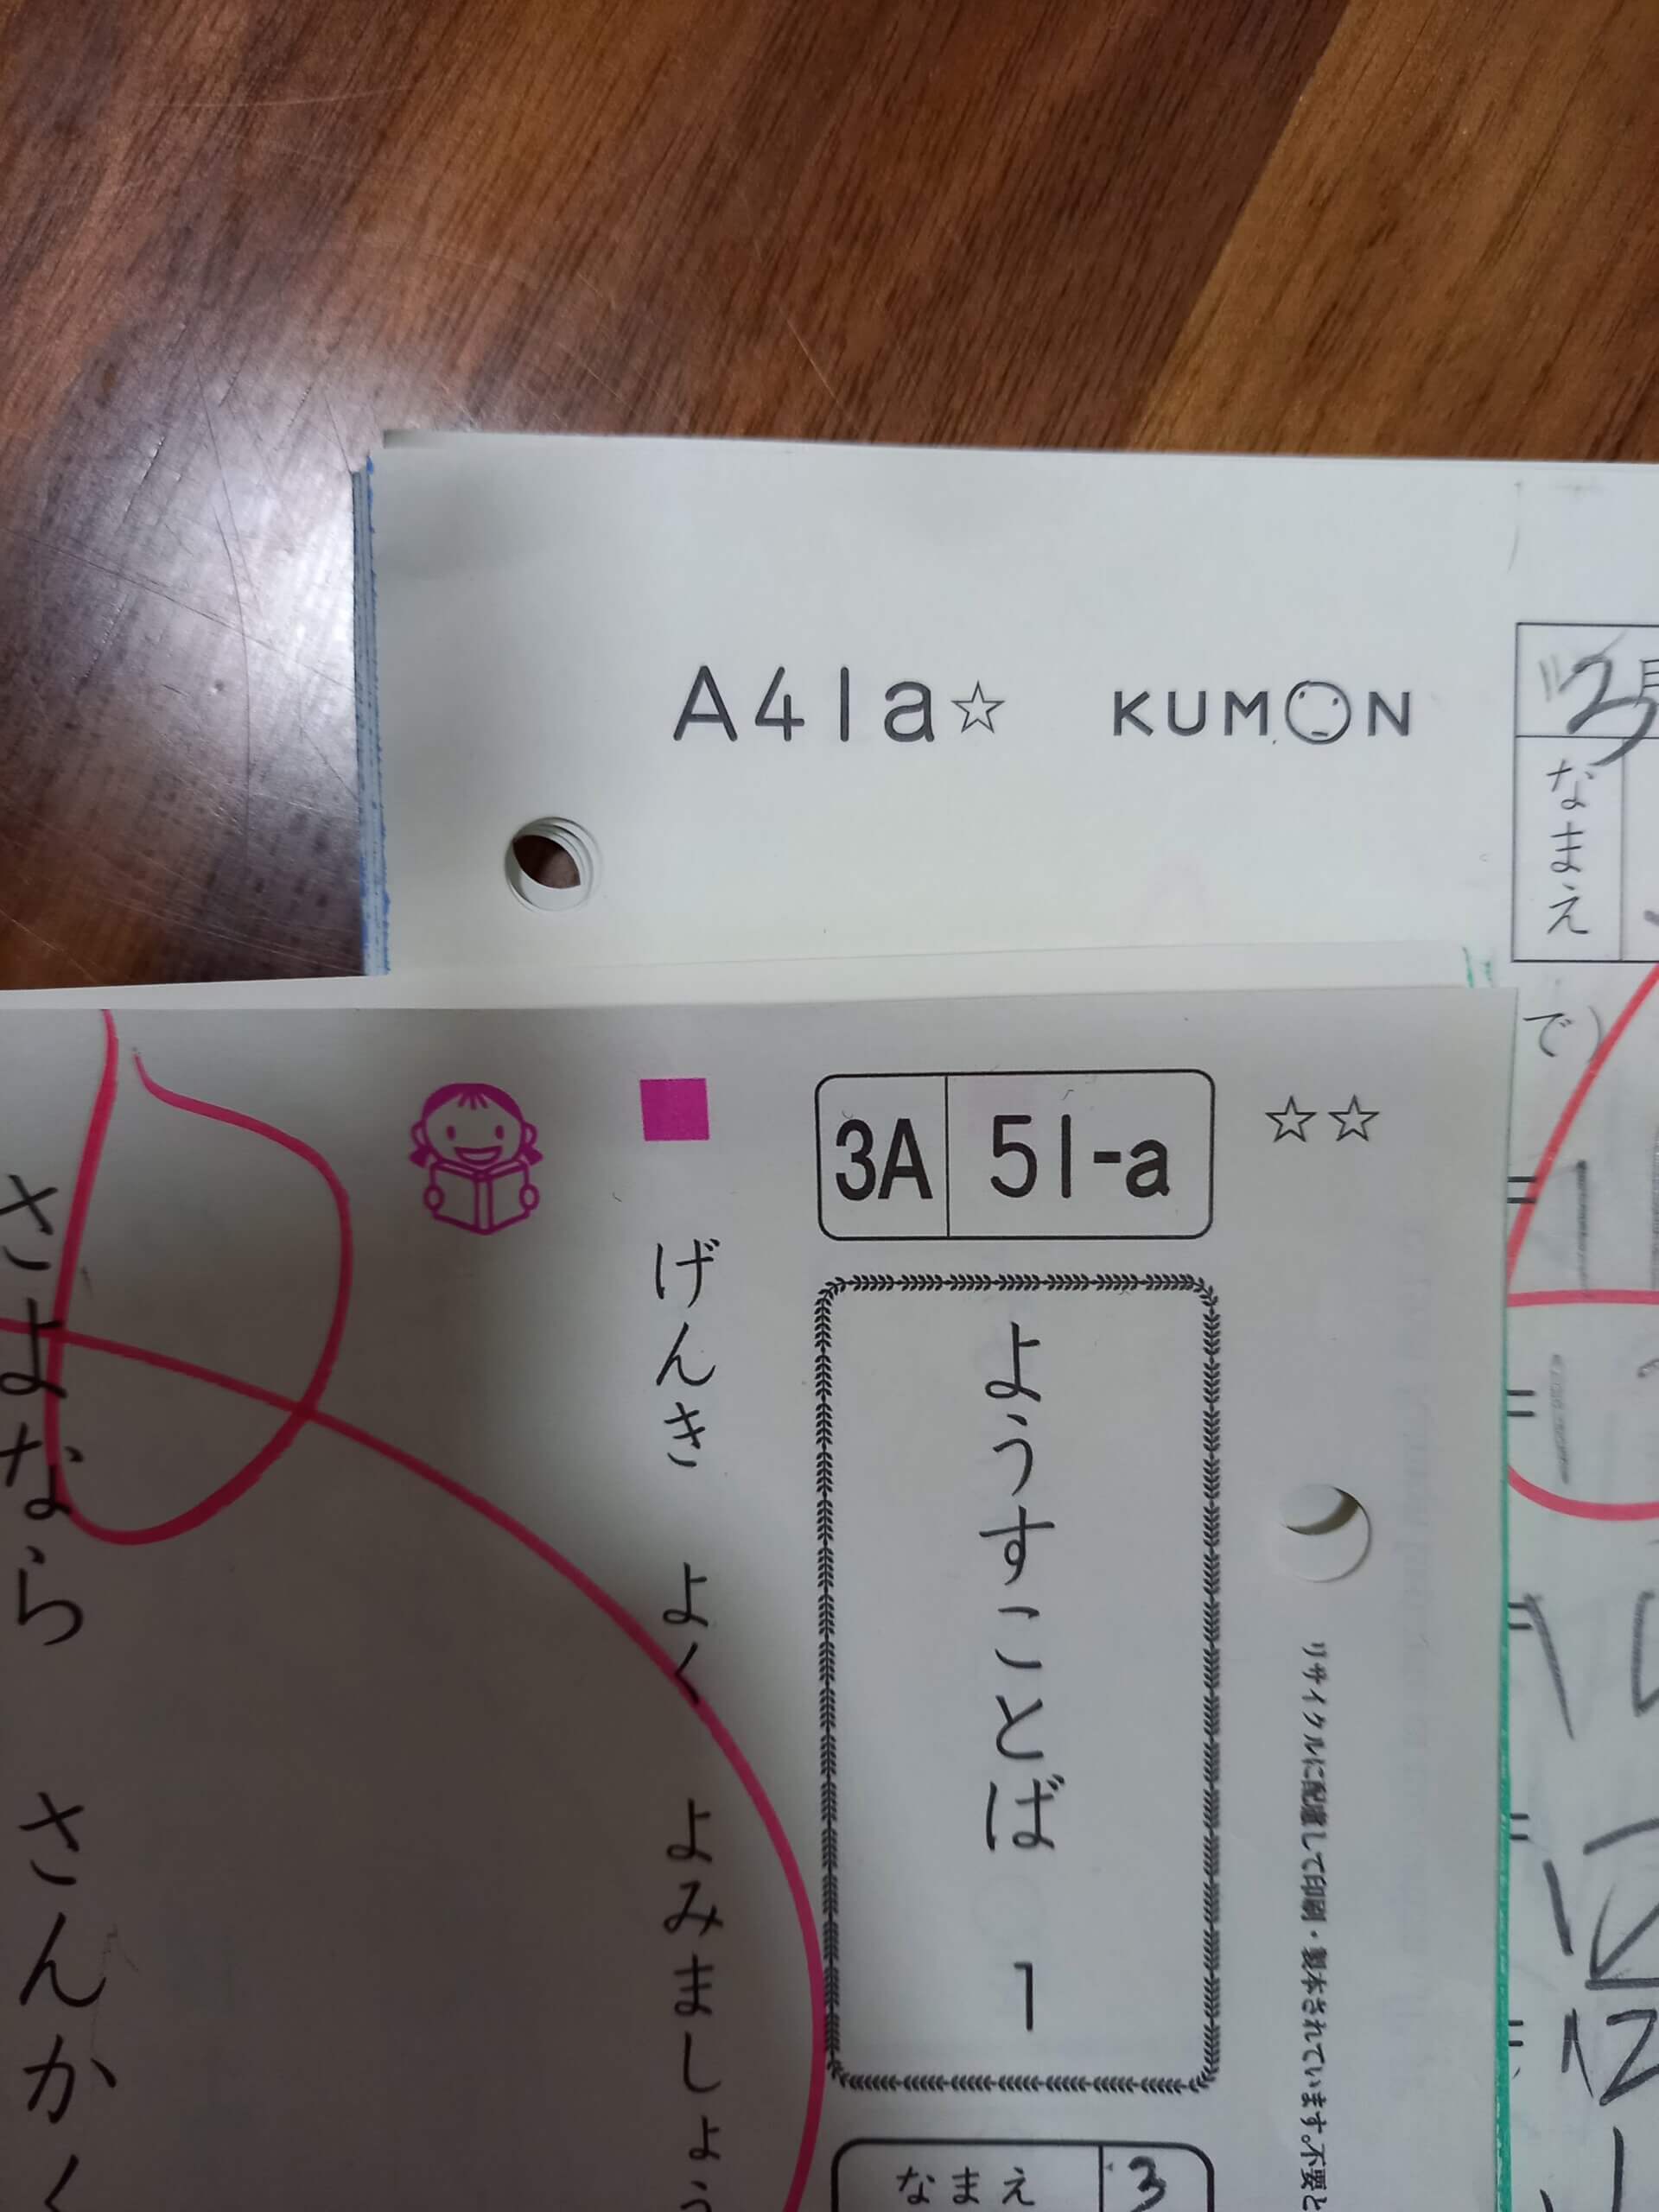 A41a☆ KUMON
2月
なまえ
で)
☆☆
3A 51-a
リサイクルに配慮して印刷・製本されています。不要と
ようすことば 1
なまえ 3
■ げんき よく よみましょう
さよなら さんかく
12
12